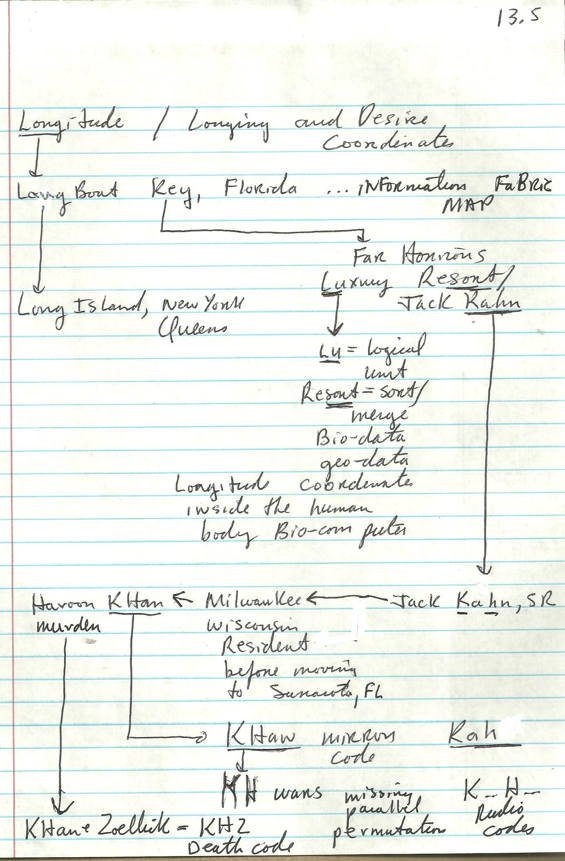 13.5
Longitude / Longing and Desire
Coordinates
Long Boat Key, Florida ... INFormation FaBRic
MAP
Far Horizons
Luxury Resort/
Long Island, New York Jack Kahn
Queens
Lu = logical
unit
Resort = sort/
merge
Bio-data
geo-data
Longitude coordinates
inside the human
body Bio-computer
Haroon KHan Milwaukee Jack Kahn, SR
murder Wisconsin
Resident
before moving
to Sarasota, FL
KHaw mirror Kah
code
KH wars missing K_H_
parallel Radio
KHan + Zoellick = KHZ permutation codes
Death code